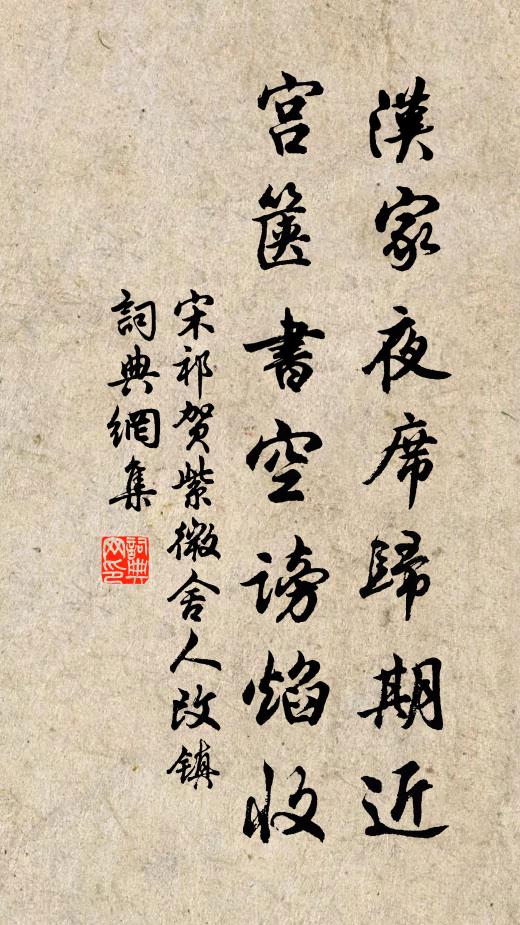 漢家夜席歸期近
宫箧書空謗焰收
宋祁贺紫微舍人改镇
詞典網集
詞典网印